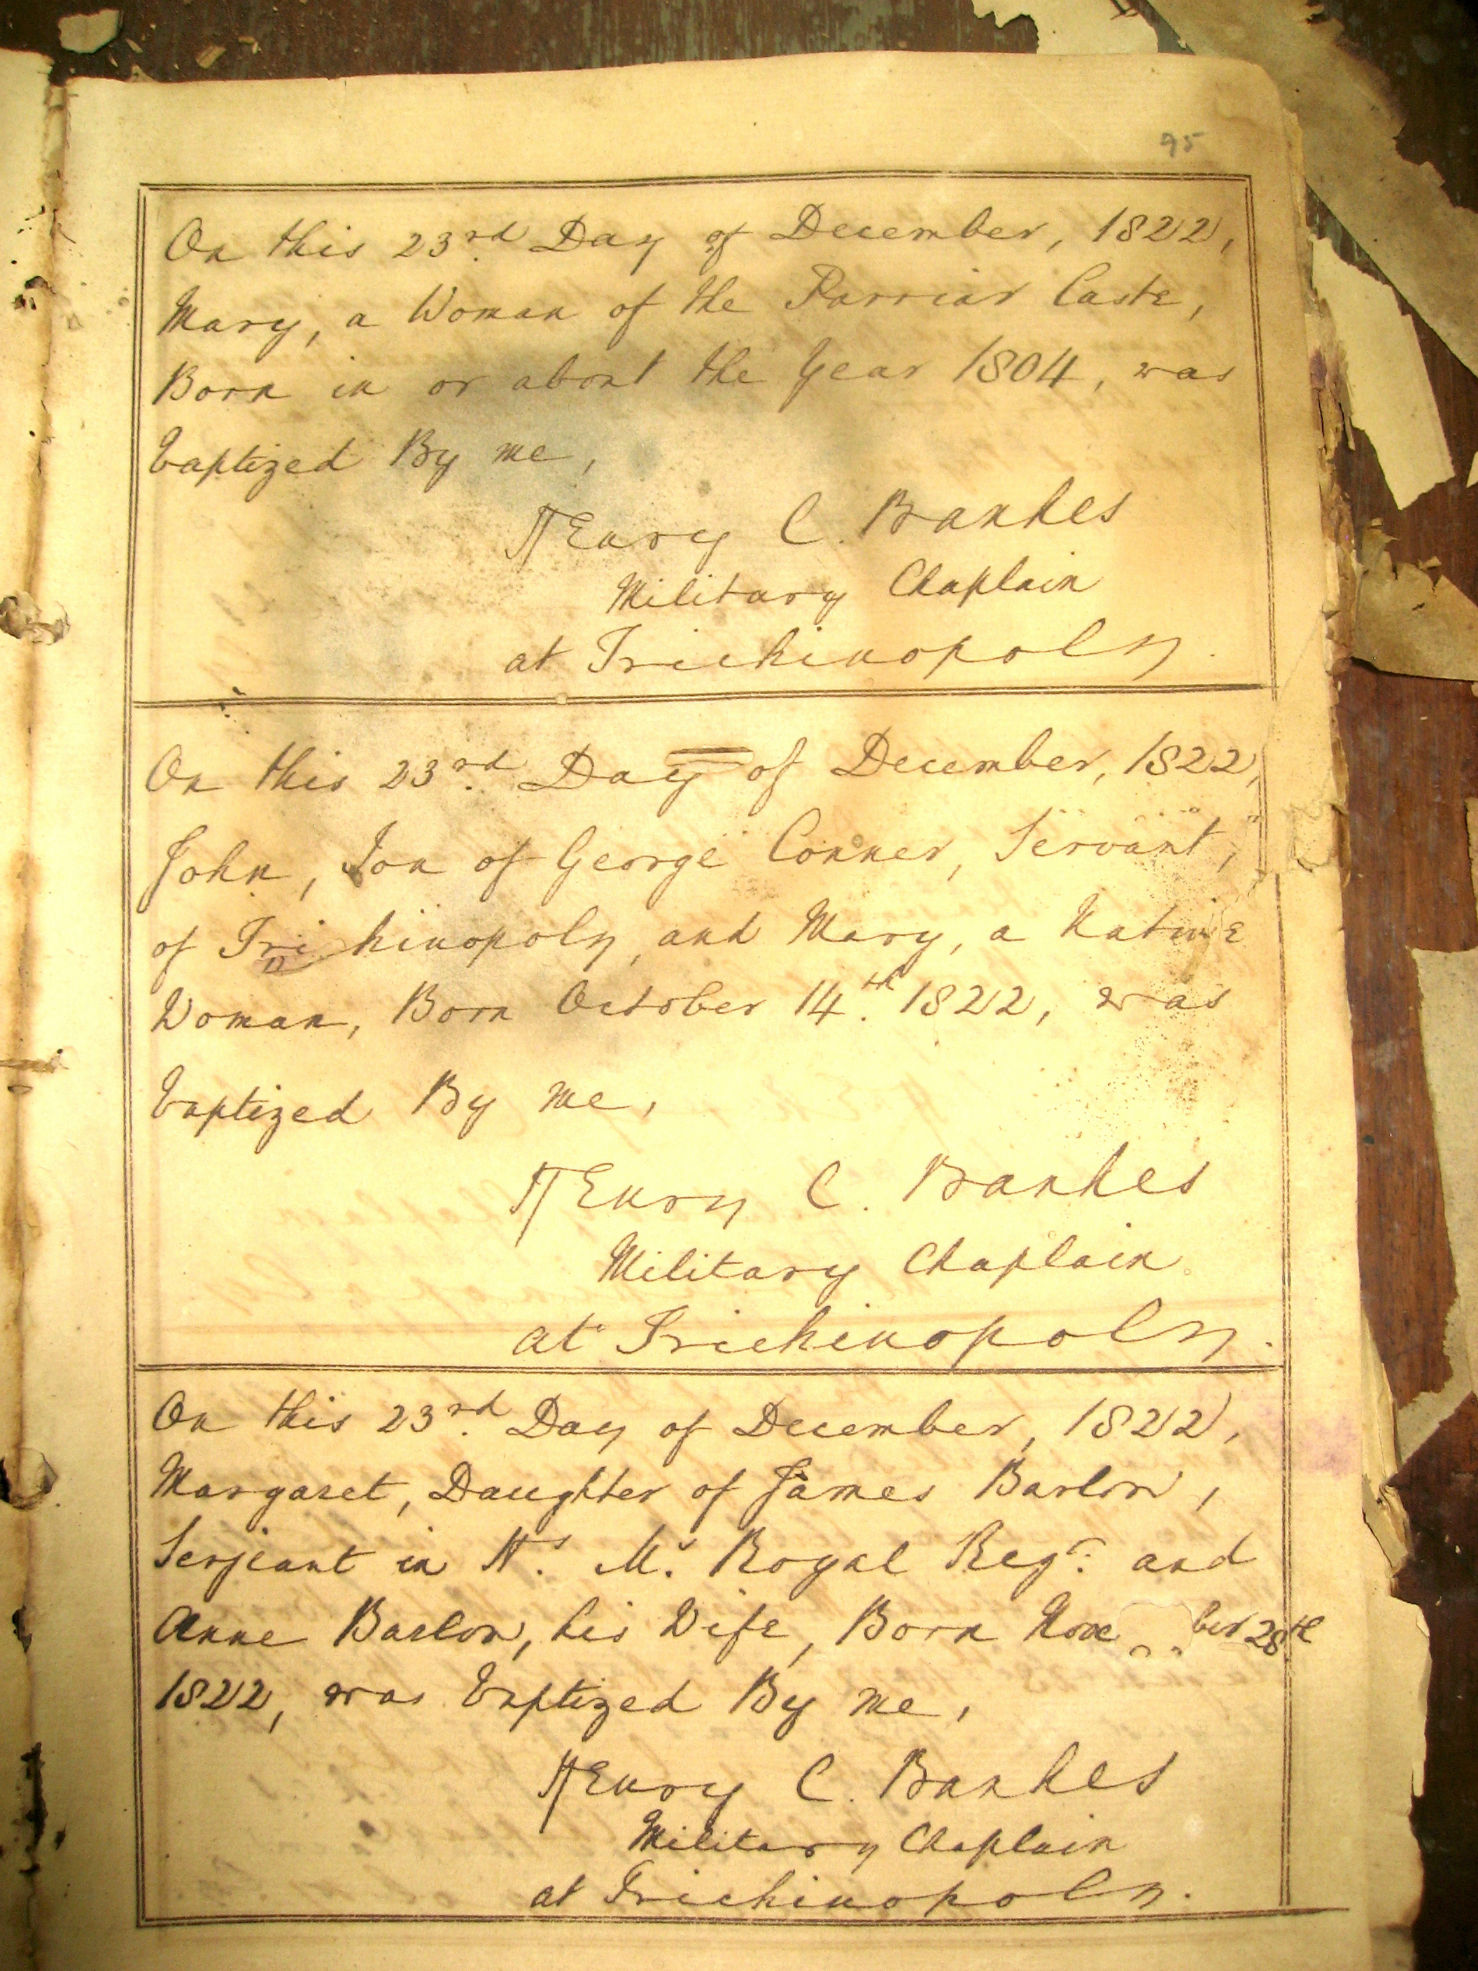 95
On this 23rd. Day of December, 1822,
Mary, a Woman of the Parriar Caste,
Born in or about the Year 1804, was
Baptized By me,
Henry C. Bankes
Military Chaplain
at Trichinopoly.
On this 23rd. Day of December, 1822,
John, Son of George Conner, Servant,
of Trichinopoly, and Mary, a Native
Woman, Born October 14th. 1822, was
Baptized By me,
Henry C. Bankes
Military Chaplain
at Trichinopoly.
On this 23rd. Day of December, 1822,
Margaret, Daughter of James Barlow,
Serjeant in H.s M.s Royal Regt. and
Anne Barlow, his Wife, Born ber 28th
1822, was Baptized By me,
Henry C. Bankes
Military Chaplain
at Trichinopoly.